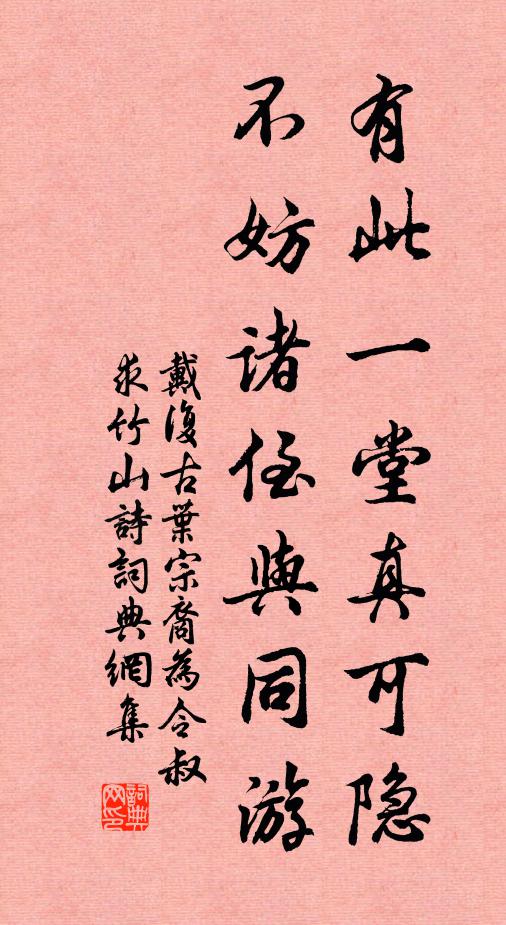 有此一堂真可隐
不妨诸侄與同游
戴復古葉宗裔為令叔
求竹山詩詞典網集
詞典网印